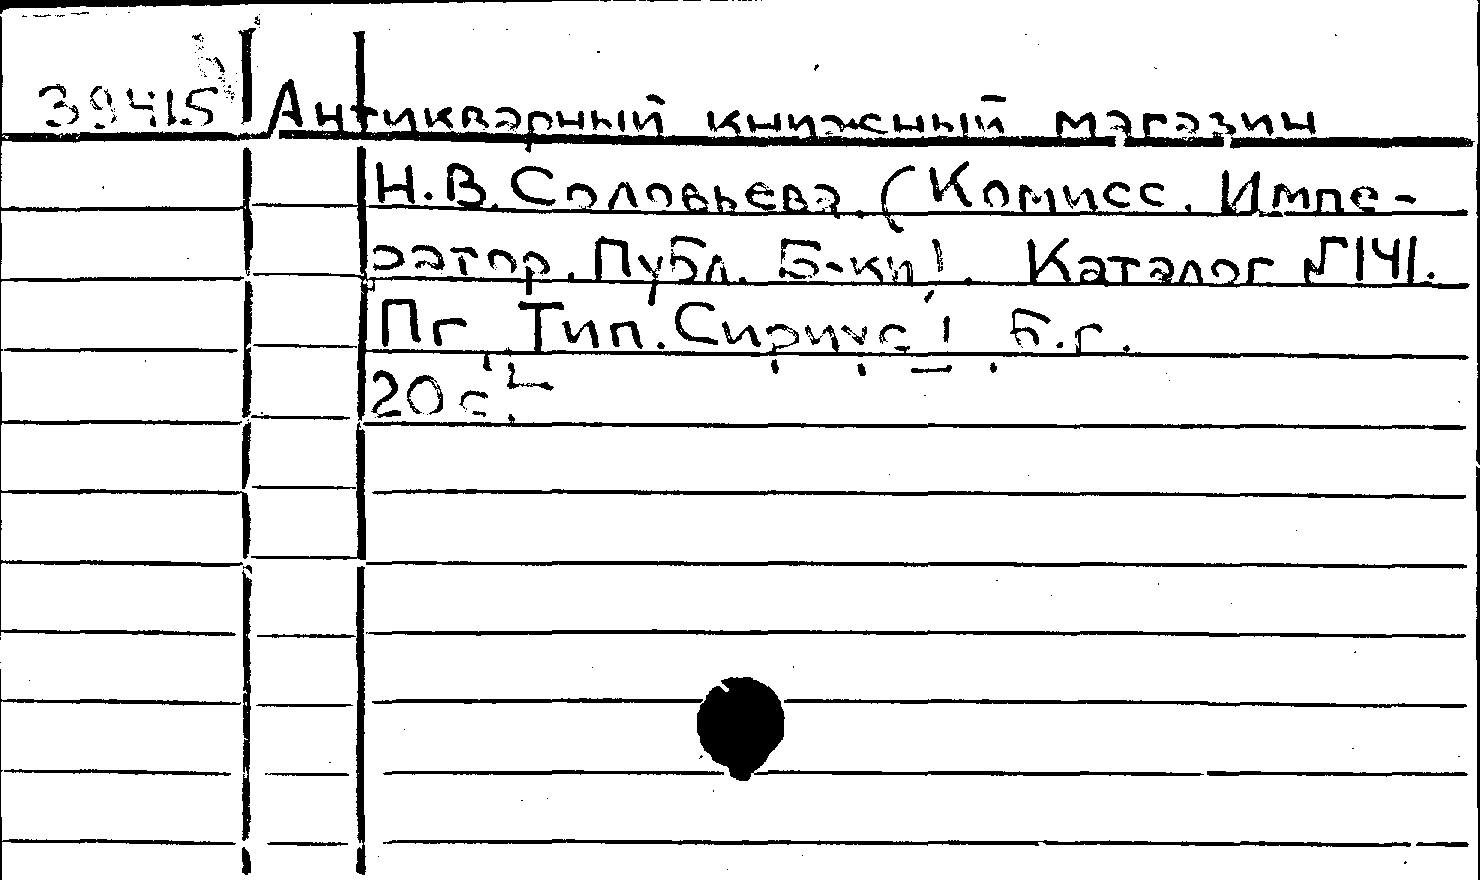 39415 Антикварный книжный магазин
Н.В. Соловьева. (Комисс. Импе-
ратор. Публ. Б-ки). Каталог №141.
Пг., Тип. Сириус, Б.г.
20 с.